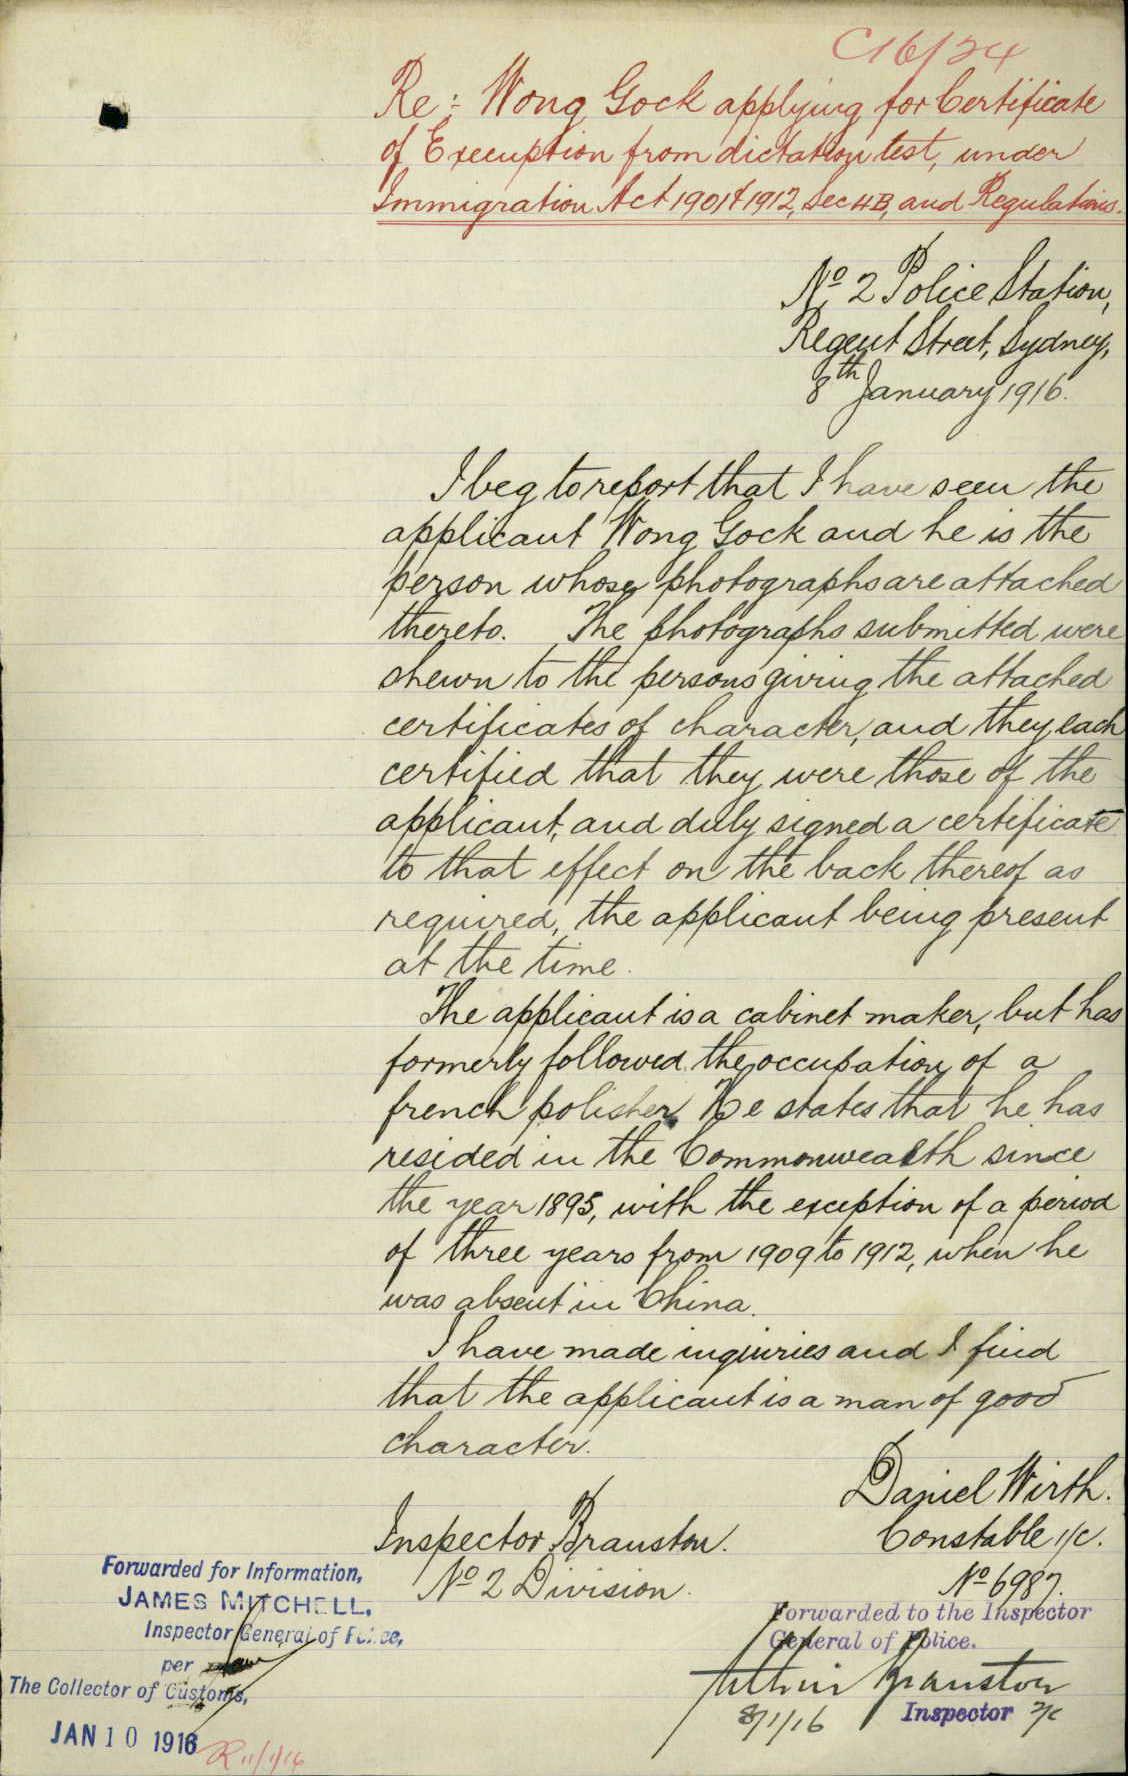 C16/24
Re: Wong Gock applying for Certificate
of Exemption from dictation test, under
Immigration Act 1901 & 1912, Sec 4B, and Regulations.
No 2 Police Station,
Regent Street, Sydney,
8th January 1916.
I beg to report that I have seen the
applicant Wong Gock and he is the
person whose photographs are attached
thereto. The photographs submitted were
shewn to the persons giving the attached
certificates of character, and they each
certified that they were those of the
applicant, and duly signed a certificate
to that effect on the back thereof as
required, the applicant being present
at the time.
The applicant is a cabinet maker, but has
formerly followed the occupation of a
french polisher. He states that he has
resided in the Commonwealth since
the year 1895, with the exception of a period
of three years from 1909 to 1912, when he
was absent in China.
I have made inquiries and I find
that the applicant is a man of good
character.
Daniel Wirth.
Constable 1/c.
No 6987.
Inspector Branston.
No 2 Division.
Forwarded to the Inspector
General of Police.
Arthur Branston
8/1/16 Inspector 2/c
Forwarded for Information,
JAMES MITCHELL,
Inspector General of Police,
per
The Collector of Customs,
JAN 10 1916
R 11/1/16